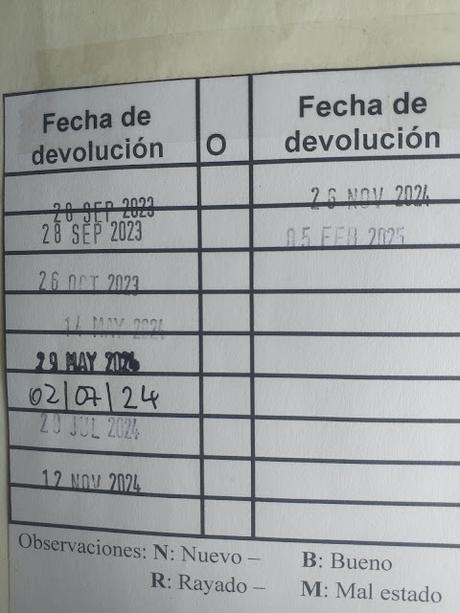 Fecha de
devolución
O
28 SEP 2023
28 SEP 2023
26 OCT 2023
14 MAY 2024
29 MAY 2024
02/07/24
29 JUL 2024
12 NOV 2024
Fecha de
devolución
26 NOV 2024
05 FEB 2025
Observaciones: N: Nuevo – B: Bueno
R: Rayado – M: Mal estado